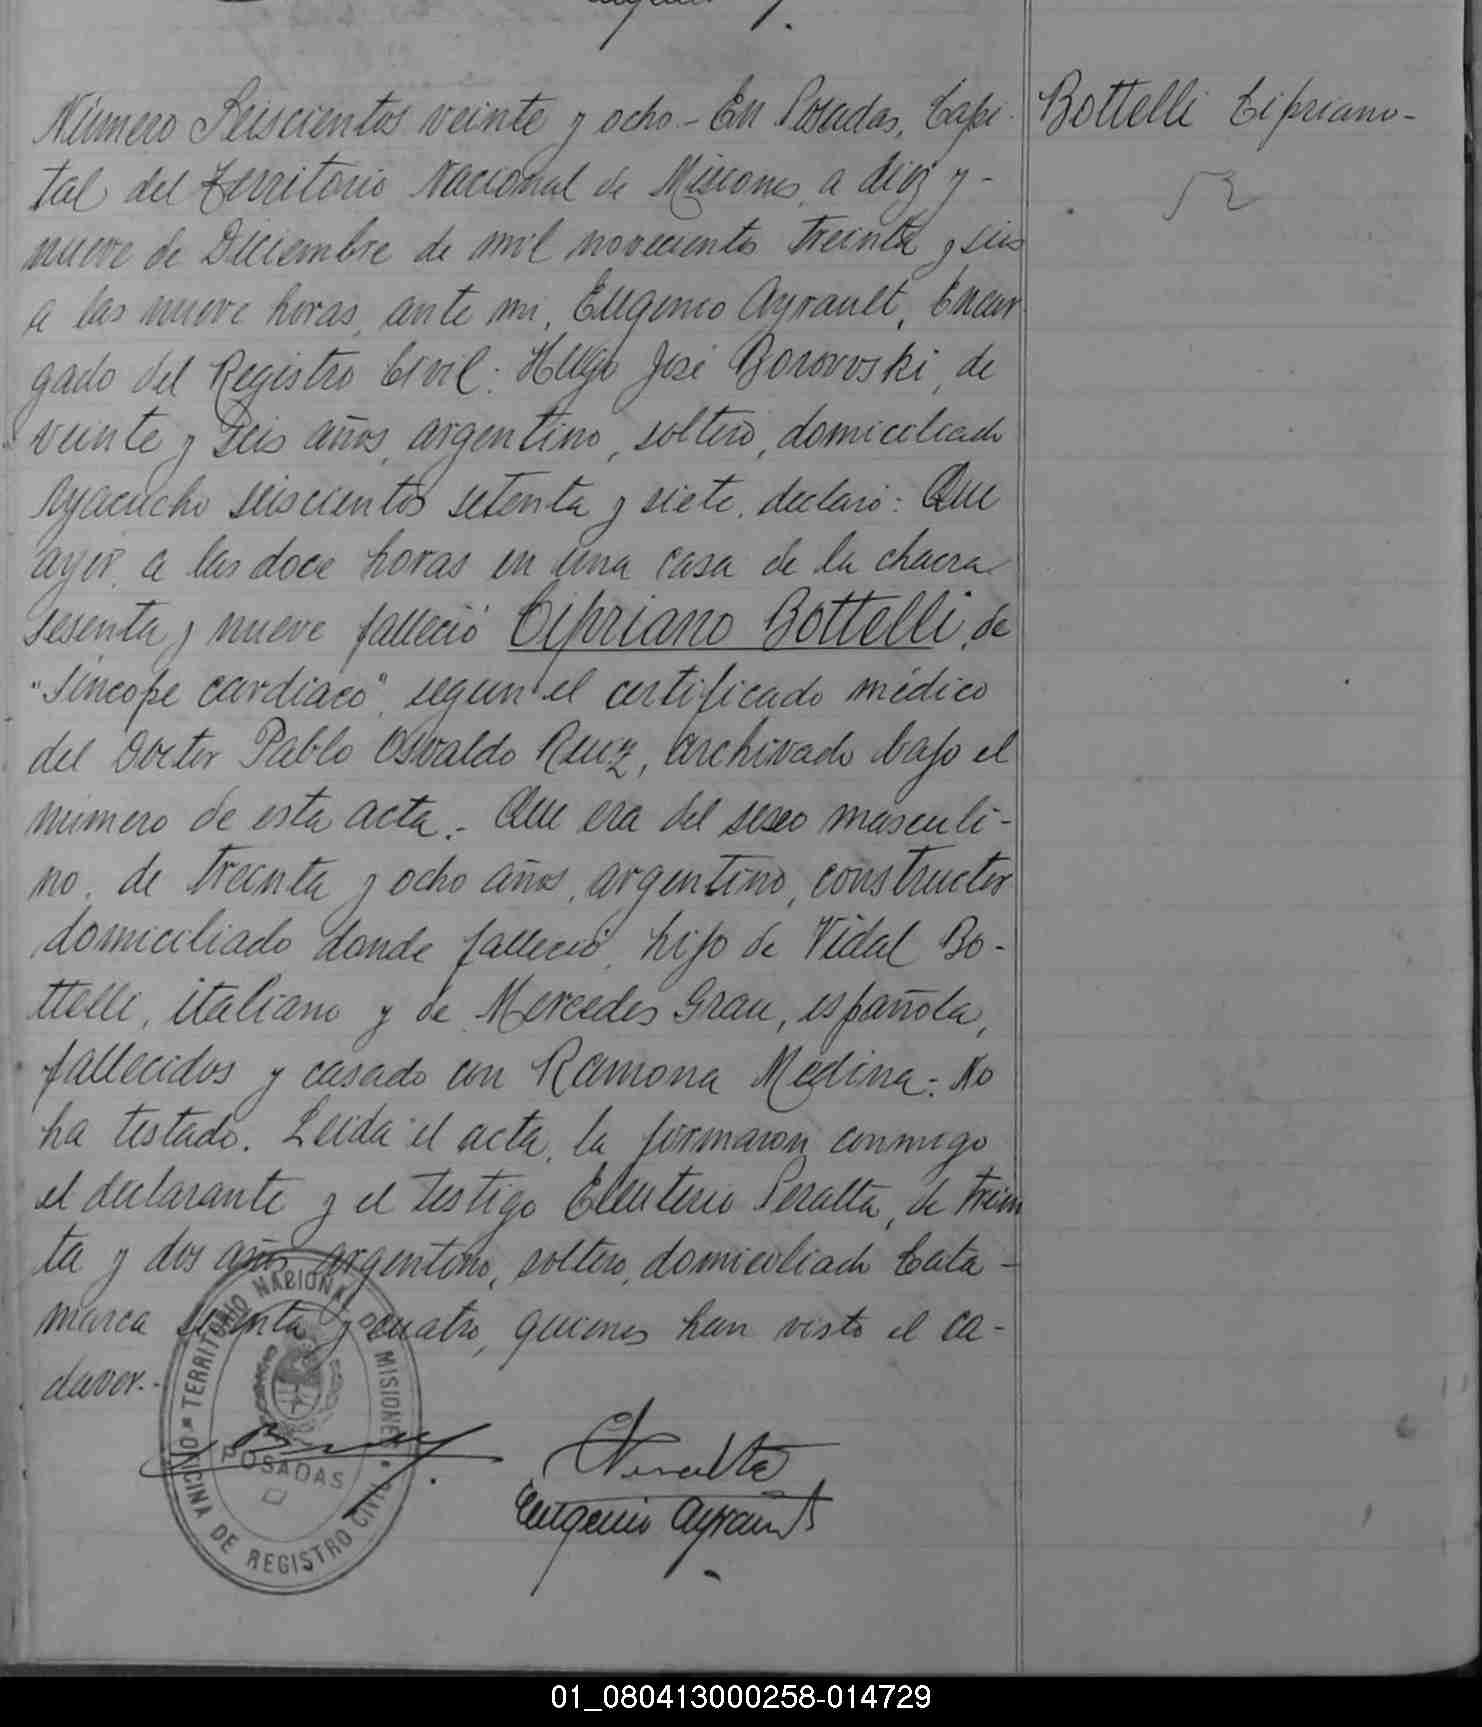 Número Seiscientos veinte y ocho.- En Posadas, Capi-
tal del Territorio Nacional de Misiones, a diez y -
nueve de Diciembre de mil novecientos treinta y seis
a las nueve horas, ante mi, Eugenio Ayrault, Encar-
gado del Registro Civil: Hugo José Borovski, de
veinte y seis años, argentino, soltero, domiciliado
Ayacucho seiscientos setenta y siete, declaró: Que
ayer, a las doce horas en una casa de la chacra
sesenta y nueve falleció Cipriano Bottelli, de
"Síncope cardiaco", segun el certificado médico
del Doctor Pablo Osvaldo Ruiz, archivado bajo el
número de esta acta.- Que era del sexo masculi-
no, de treinta y ocho años, argentino, constructor
domiciliado donde falleció, hijo de Vidal Bo-
ttelli, italiano y de Mercedes Grau, española,
fallecidos y casado con Ramona Medina.- No
ha testado. Leida el acta, la firmaron conmigo
el declarante y el testigo Eleuterio Peralta, de trein
ta y dos años, argentino, soltero, domiciliado Cata-
marca y cuatro, quienes han visto el ca-
daver.-
Bottelli Cipriano-
OFICINA DE REGISTRO CIVIL * TERRITORIO NACIONAL DE MISIONES *
POSADAS
EPeralta
Eugenio Ayrault
01_080413000258-014729